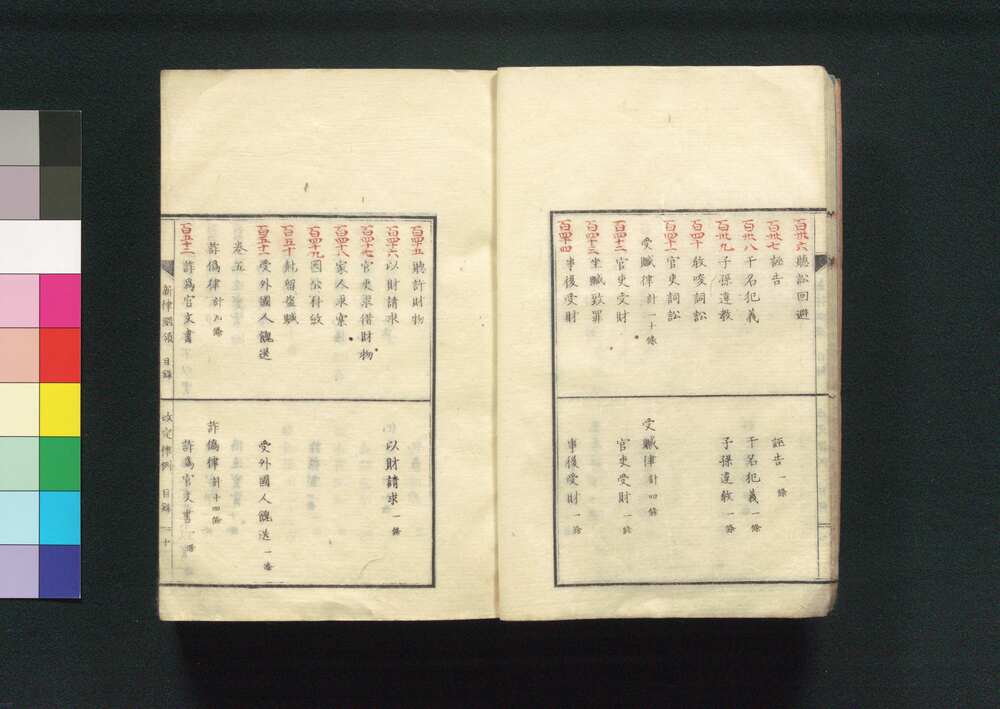 百卅六 聽訟回避
百卅七 誣告
百卅八 干名犯義
百卅九 子孫違教
百四十 教唆詞訟
百四十一 官吏詞訟
受贓律 計一十條
百四十二 官吏受財
百四十三 坐贓致罪
百四十四 事後受財
誣告 一條
干名犯義 一條
子孫違教 一條
受贓律 計四條
官吏受財 一條
事後受財 一條
百四十五 聽許財物
百四十六 以財請求
百四十七 官吏求借財物
百四十八 家人求索
百四十九 因公科斂
百五十 剋留盜贓
百五十一 受外國人餽送
卷五
詐僞律 計九條
百五十二 詐爲官文書
以財請求 一條
受外國人餽送 一條
詐僞律 計十四條
詐爲官文書 一條
新律綱領 目錄 改定律例 目錄 二十